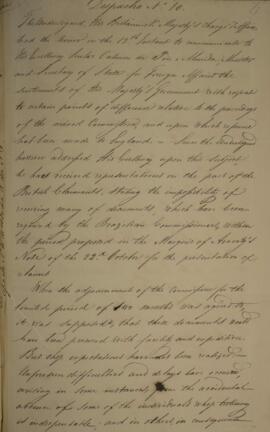 Despacho Nº 10.
The Undersigned, His Britannick Majesty's Chargé d'Affaires,
had the honor on the 12th Instant to communicate to
His Excellency Senhor Calmon du Pin e Almeida, Minister
and Secretary of State for Foreign Affairs the
sentiments of His Majesty's Government with regard
to certain points of difference relative to the proceedings
of the mixed Commission, and upon which reference
had been made to England. Since the Undersigned
addressed His Excellency upon this subject
he has received representations on the part of the
British Claimants, stating the impossibility of
procuring many of documents, which have been
required by the Brazilian Commissioners, within
the period proposed in the Marquis of Aracaty's
Note of the 22nd October for the presentation of
claims
When the adjournment of the Commission for the
limited period of two months was agreed to,
it was supposed, that these documents would
have been procured with facility and expedition.
But these expectations have not been realized
Unforeseen difficulties and delays have occurred,
arising in some instances from the accidental
absence of some of the individuals whose testimony
is indispensable, and in others, in consequence